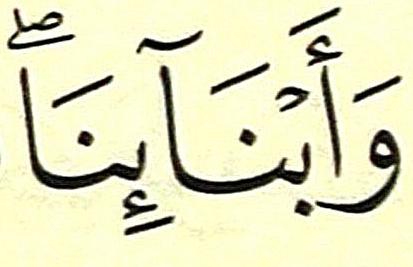 وَأَبۡنَآئِنَاۖ